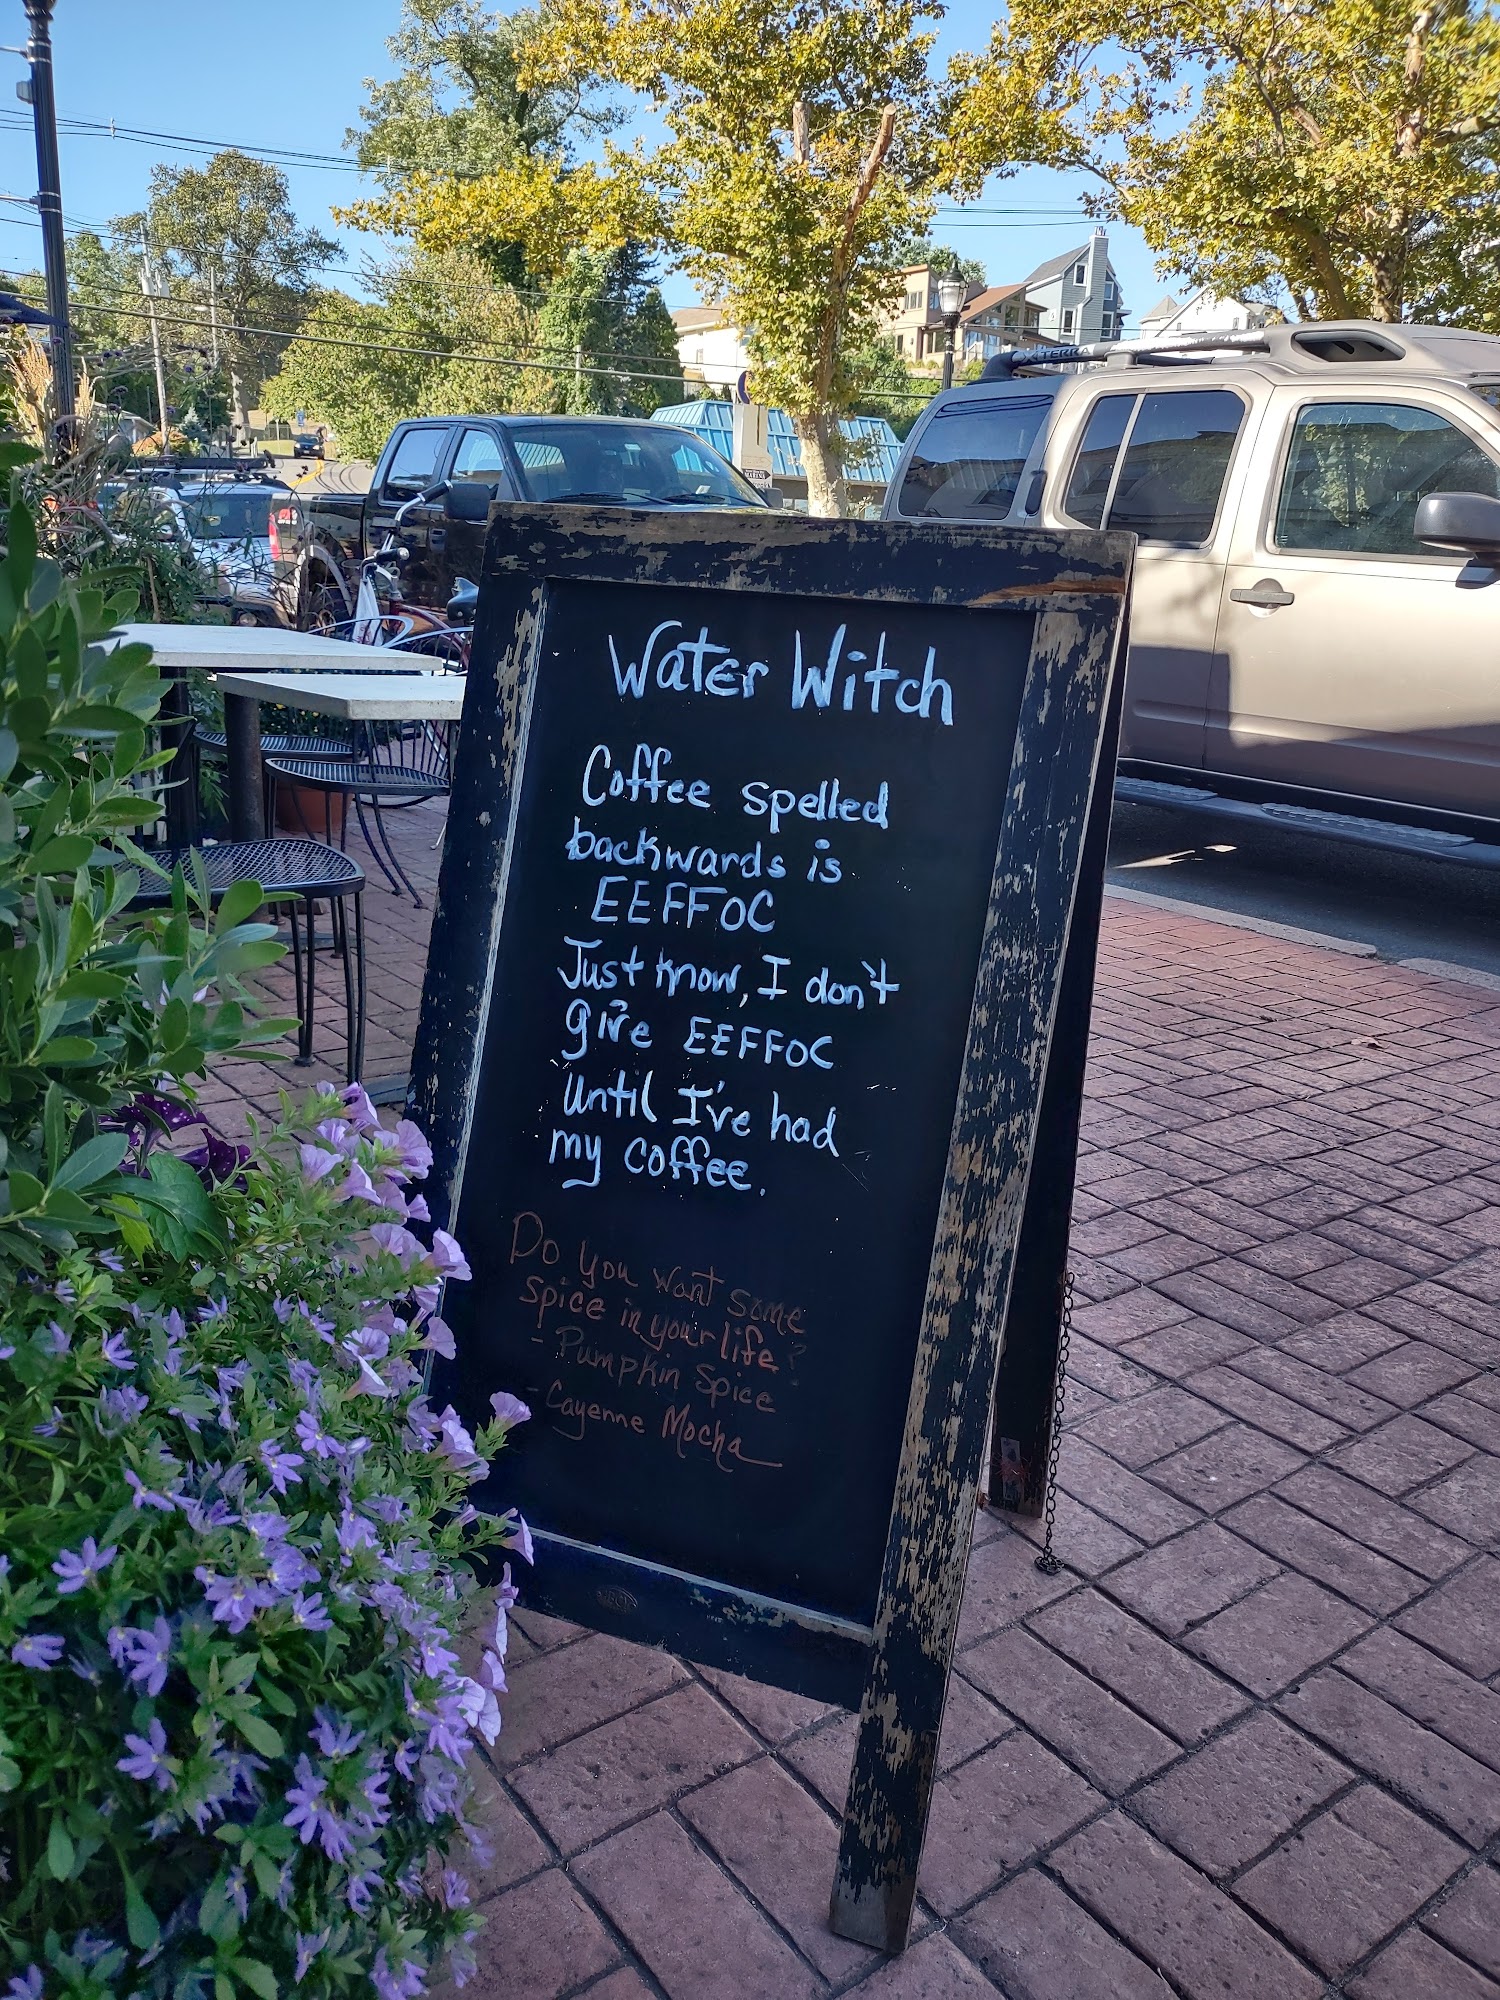 XTERRA
MARINA
Water Witch
Coffee spelled
backwards is
EEFFOC
Just know, I don't
give EEFFOC
until I've had
my coffee.
Do you want some
spice in your life?
- Pumpkin Spice
- Cayenne Mocha